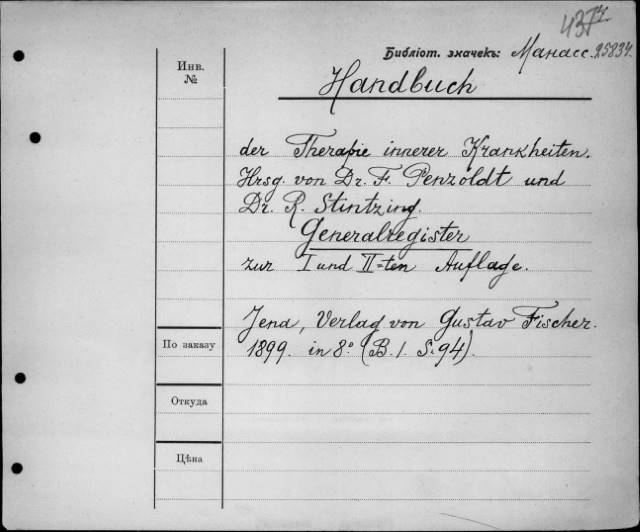 437⁷
Библіот. значекъ: Манасс. 25834.
Инв.
№
Handbuch
der Therapie innerer Krankheiten.
Hrsg. von Dr. F. Penzoldt und
Dr. R. Stintzing.
Generalregister
zur I und II=ten Auflage.
Jena, Verlag von Gustav Fischer.
По заказу
1899. in 8º. (B. 1. S. 94).
Откуда
Цѣна